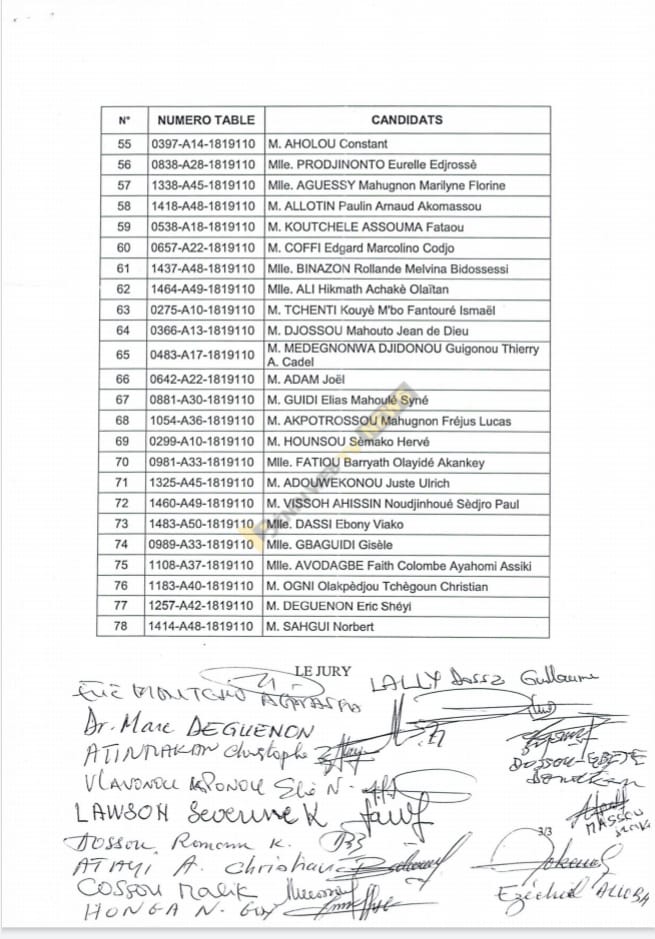 N° NUMERO TABLE CANDIDATS
55 0397-A14-1819110 M. AHOLOU Constant
56 0838-A28-1819110 Mlle. PRODJINONTO Eurelle Edjrossè
57 1338-A45-1819110 Mlle. AGUESSY Mahugnon Marilyne Florine
58 1418-A48-1819110 M. ALLOTIN Paulin Arnaud Akomassou
59 0538-A18-1819110 M. KOUTCHELE ASSOUMA Fataou
60 0657-A22-1819110 M. COFFI Edgard Marcolino Codjo
61 1437-A48-1819110 Mlle. BINAZON Rollande Melvina Bidossessi
62 1464-A49-1819110 Mlle. ALI Hikmath Achakè Olaïtan
63 0275-A10-1819110 M. TCHENTI Kouyè M'bo Fantouré Ismaël
64 0366-A13-1819110 M. DJOSSOU Mahouto Jean de Dieu
65 0483-A17-1819110 M. MEDEGNONWA DJIDONOU Guigonou Thierry
A. Cadel
66 0642-A22-1819110 M. ADAM Joël
67 0881-A30-1819110 M. GUIDI Elias Mahoulé Syné
68 1054-A36-1819110 M. AKPOTROSSOU Mahugnon Fréjus Lucas
69 0299-A10-1819110 M. HOUNSOU Sèmako Hervé
70 0981-A33-1819110 Mlle. FATIOU Barryath Olayidé Akankey
71 1325-A45-1819110 M. ADOUWEKONOU Juste Ulrich
72 1460-A49-1819110 M. VISSOH AHISSIN Noudjinhoué Sèdjro Paul
73 1483-A50-1819110 Mlle. DASSI Ebony Viako
74 0989-A33-1819110 Mlle. GBAGUIDI Gisèle
75 1108-A37-1819110 Mlle. AVODAGBE Faith Colombe Ayahomi Assiki
76 1183-A40-1819110 M. OGNI Olakpèdjou Tchègoun Christian
77 1257-A42-1819110 M. DEGUENON Eric Shéyi
78 1414-A48-1819110 M. SAHGUI Norbert
LE JURY
LALLY Dossa Guillaume
Dr. Marc DEGUENON
Christophe
LAWSON Severine K
DOSSOU Romann K.
ATAYI A. Christian
COSSOU Malik
HONGA N. Guy
3/3